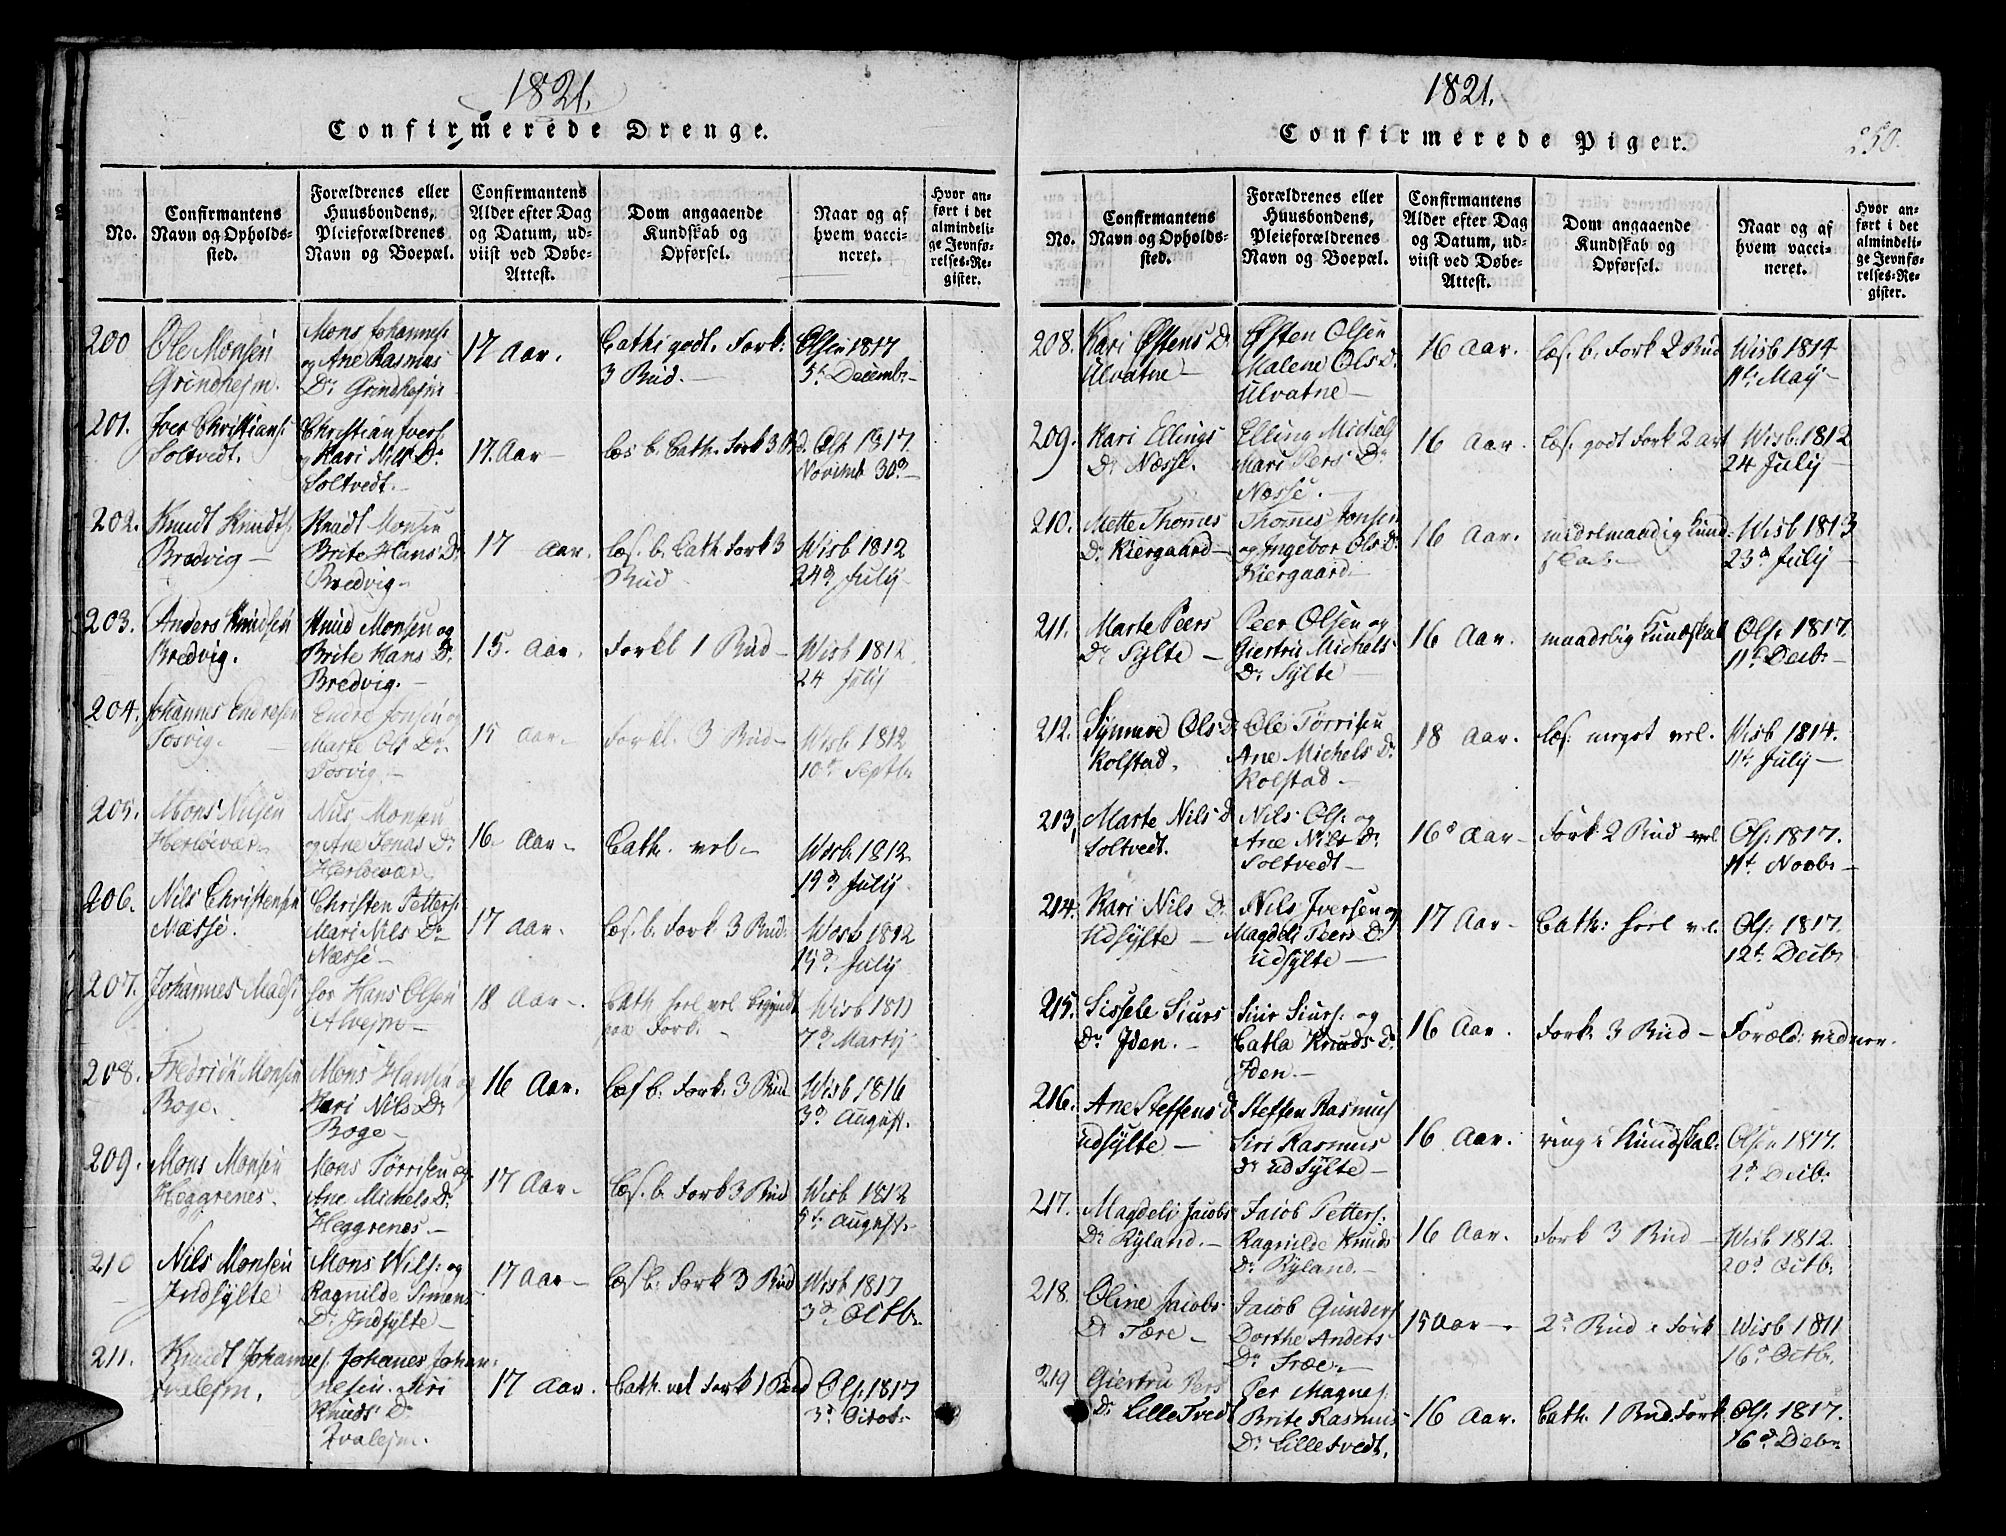 1821.
Confirmerede Drenge.
No.
Confirmantens Navn og Opholdssted.
Forældrenes eller Huusbondens, Pleieforældrenes Navn og Boepæl.
Confirmantens Alder efter Dag og Datum, udviist ved Døbe-Attest.
Dom angaaende Kundskab og Opførsel.
Naar og af hvem vaccineret.
Hvor anført i det almindelige Jevnførelses-Register.
200 Ole Monsen Mons Johannes: 17 Aar. Cathe godt. Fork: Olsen 1817
Grindhejm. og Ane Rasmus 3 Bud. 5t Decembr
Dr Grindhejm
201. Iver Christians: Christian Ivers
Soltvedt. og Kari Nils Dr 17. Aar læs b. Cath. Fork 3 B. Ols 1817.
Soltvedt. Novembr 30d
202. Knudt Knudts: Knudt Monsen
Bredvig Brite Hans Dr 17 Aar. læs. b. Cath. Fork 3 Wisb 1812
Bredvig Bud 24d July
203. Anders Knudsen Knud Monsen og
Bredvig. Brite Hans Dr 15. Aar. Forkl 1 Bud Wisb 1812
Bredvig. 24 July
204. Johannes Endresen Endre Jonsen og
Tosvig. Marte Ols Dr 15 Aar Forkl. 3 Bud Wisb 1812
Tosvig. 10d Septbr
205. Mons Nilsen Nils Monsen
Herløevær og Ane Jonas Dr 16 Aar Cath. vel Wisb 1812
Herløevær 19d July
206. Nils Christensen Christen Petters: 17 Aar. læs. b. Fork 3 Bud Wisb 1812
Næsse. Mari Nils Dr 19d July
Næsse
207. Johannes Mads: hos Hans Olsen 18 Aar. Cath heel vel Wisb 1811
Alvejm Fork. 7d Martij
208. Fredrich Monsen Mons Hansen og 16 Aar. læs b. Fork. 3 Bud Wisb 1816
Boge. Kari Nils Dr 3d August.
Boge
209. Mons Monsen Mons Tørrisen og 17 Aar. læs. b. Fork 3 Bud Wisb 1812
Heggrenes. Ane Michels Dr 5t August.
Heggrenes
210 Nils Monsen Mons Nils: og 17 Aar læs b. Fork 3 Bud Wisb 1817
Indsylte Ragnilde Simons 3d Octbr
Dr Indsylte
211. Knudt Johannes. Johanes Johan-
nesen. Siri 17 Aar. Cath. vel Fork 1 Bud Ols. 1817
Knuds Dr 3d Octobr
1821.
Confirmerede Piger.
250.
No.
Confirmantens Navn og Opholdssted.
Forældrenes eller Huusbondens, Pleieforældrenes Navn og Boepæl.
Confirmantens Alder efter Dag og Datum, udviist ved Døbe-Attest.
Dom angaaende Kundskab og Opførsel.
Naar og af hvem vaccineret.
Hvor anført i det almindelige Jevnførelses-Register.
208. Kari Østens D. Østen Olsen 16 Aar. læs. b. Fork 2 Bud Wisb 1814
Ulvatne Malene Ols D. 11t May
Ulvatne
209. Kari Ellings Elling Michels 16 Aar. læs. godt Fork 2 art Wisb. 1812
Dr Næsse. Mari Pers Dr 24 July
Næsse.
210. Mette Thomes Thomes Jonsen 16 Aar. midelmaadig Kund: Wisb 1813
Dr Kiergaard og Ingebor Ols D. skab. 23d July
Kiergaard
211. Marte Peers Peer Olsen og 16 Aar. maadelig Kundskab Ols. 1817.
Dr Sylte Giertru Michels 11t Decbr
Dr Sylte
212. Synneve Ols D. Ole Tørrisen 18 Aar. læs. meget vel. Wisb 1814.
Kolstad. Ane Michels Dr 11t July
Kolstad
213, Marte Nils D. Nils Ols. og 16 Aar Fork 2 Bud vel Ols. 1817.
Soltvedt. Ane Nils Dr 11t Novbr
Soltvedt
214. Kari Nils Dr Nils Iversen og 17 Aar Cath: heel vel. Ols. 1817.
Udsylte Magdeli Peers D. 12t Decbr
Udsylte
215. Sissele Siurs Siur Siurs: og 16 Aar. Fork. 3 Bud Foræld: vidner.
Dr Iden. Catla Knuds Dr
Iden.
216. Ane Steffens D. Steffen Rasmus 16 Aar. ring i Kundskab. Olsen 1817.
Udsylte Siri Rasmus 2d Decbr
Dr Udsylte
217. Magdeli Jacobs Jacob Petters: 16 Aar. Fork 3 Bud Wisb 1812
Dr Ryland. Ragnilde Knuds 20d Octbr
Dr Ryland.
218. Oline Jacobs Jacob Gunders 15 Aar 2d Bud i Fork Wisb 1811
Dr Sære Dorthe Anders 16d Octbr
Dr Sræe
219 Giertru Pers Per Magnes. 16 Aar. Cath. 1 Bud. Fork Ols. 1817.
Dr LilleTvedt Brite Rasmus 16d Decbr
Dr Lilletvedt.